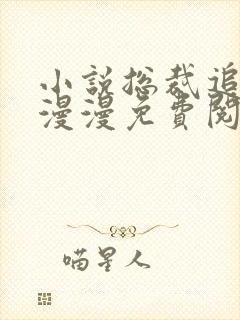 小说总裁追
漫漫免費閱
喵星人